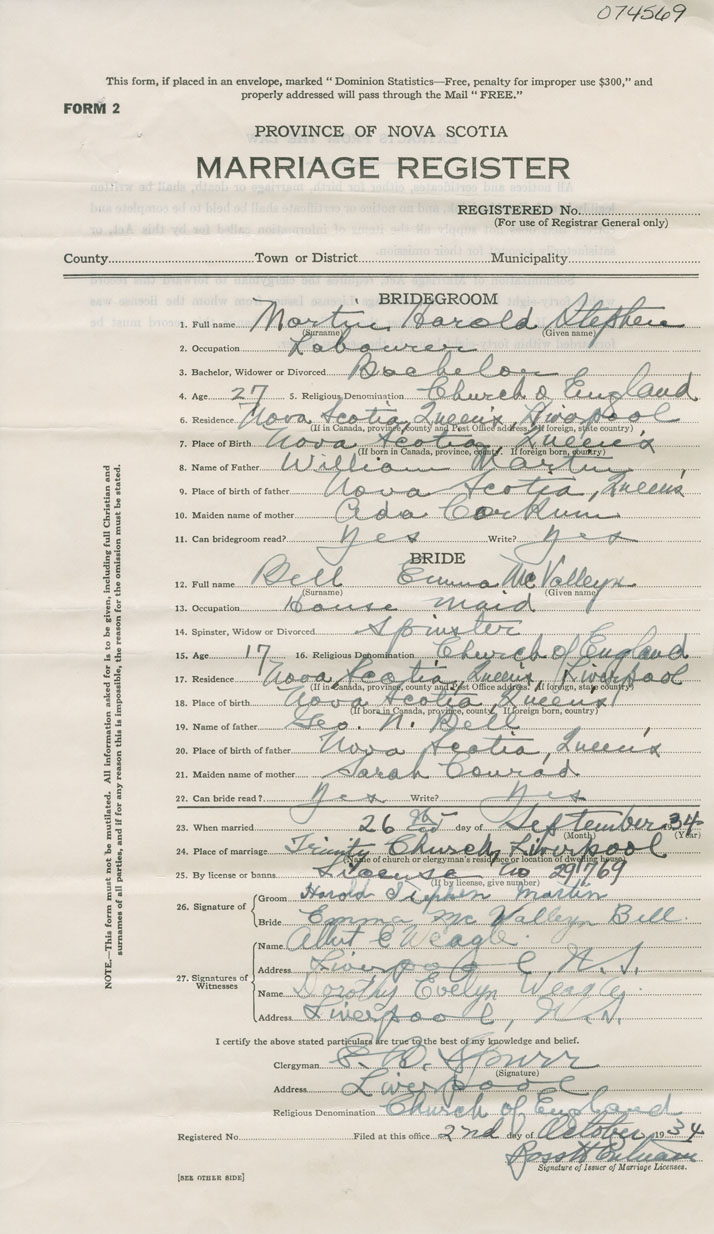 074569
This form, if placed in an envelope, marked " Dominion Statistics—Free, penalty for improper use $300," and
properly addressed will pass through the Mail " FREE."
FORM 2
PROVINCE OF NOVA SCOTIA
MARRIAGE REGISTER
REGISTERED No.
(For use of Registrar General only)
County Town or District Municipality
BRIDEGROOM
1. Full name Martin, Harold Stephen
(Surname) (Given name)
2. Occupation Labourer
3. Bachelor, Widower or Divorced Bachelor
4. Age 27 5. Religious Denomination Church o England
6. Residence Nova Scotia, Queen's, Liverpool
(If in Canada, province, county and Post Office address. If foreign, state country)
7. Place of Birth Nova Scotia, Queen's
(If born in Canada, province, county. If foreign born, country)
8. Name of Father William Martin
9. Place of birth of father Nova Scotia, Queens
10. Maiden name of mother Ada Corkum
11. Can bridegroom read? Yes Write? Yes
BRIDE
12. Full name Bell Emma McValleyn
(Surname) (Given name)
13. Occupation House maid
14. Spinster, Widow or Divorced Spinster
15. Age 17 16. Religious Denomination Church of England
17. Residence Nova Scotia, Queen's, Liverpool
(If in Canada, province, county and Post Office address. If foreign, state country)
18. Place of birth Nova Scotia, Queens
(If born in Canada, province, county. If foreign born, country)
19. Name of father Geo. N. Bell
20. Place of birth of father Nova Scotia, Queen's
21. Maiden name of mother Sarah Conrad
22. Can bride read? Yes Write? Yes
23. When married 26 day of September 1934
(Month) (Year)
24. Place of marriage Trinity Church, Liverpool
(Name of church or clergyman's residence or location of dwelling house)
25. By license or banns License No 291769
(If by license, give number)
26. Signature of Groom Harold Stephen Martin
Bride Emma Mc Valleyn Bell.
27. Signatures of Witnesses Name Albert E Weagle.
Address Liverpool, N.S.
Name Dorothy Evelyn Weagle.
Address Liverpool, N.S.
I certify the above stated particulars are true to the best of my knowledge and belief.
Clergyman Spurr
(Signature)
Address Liverpool
Religious Denomination Church of England
Registered No. Filed at this office 2nd day of October 1934
Signature of Issuer of Marriage Licenses.
[SEE OTHER SIDE]
NOTE.—This form must not be mutilated. All information asked for is to be given, including full Christian and
surnames of all parties, and if for any reason this is impossible, the reason for the omission must be stated.